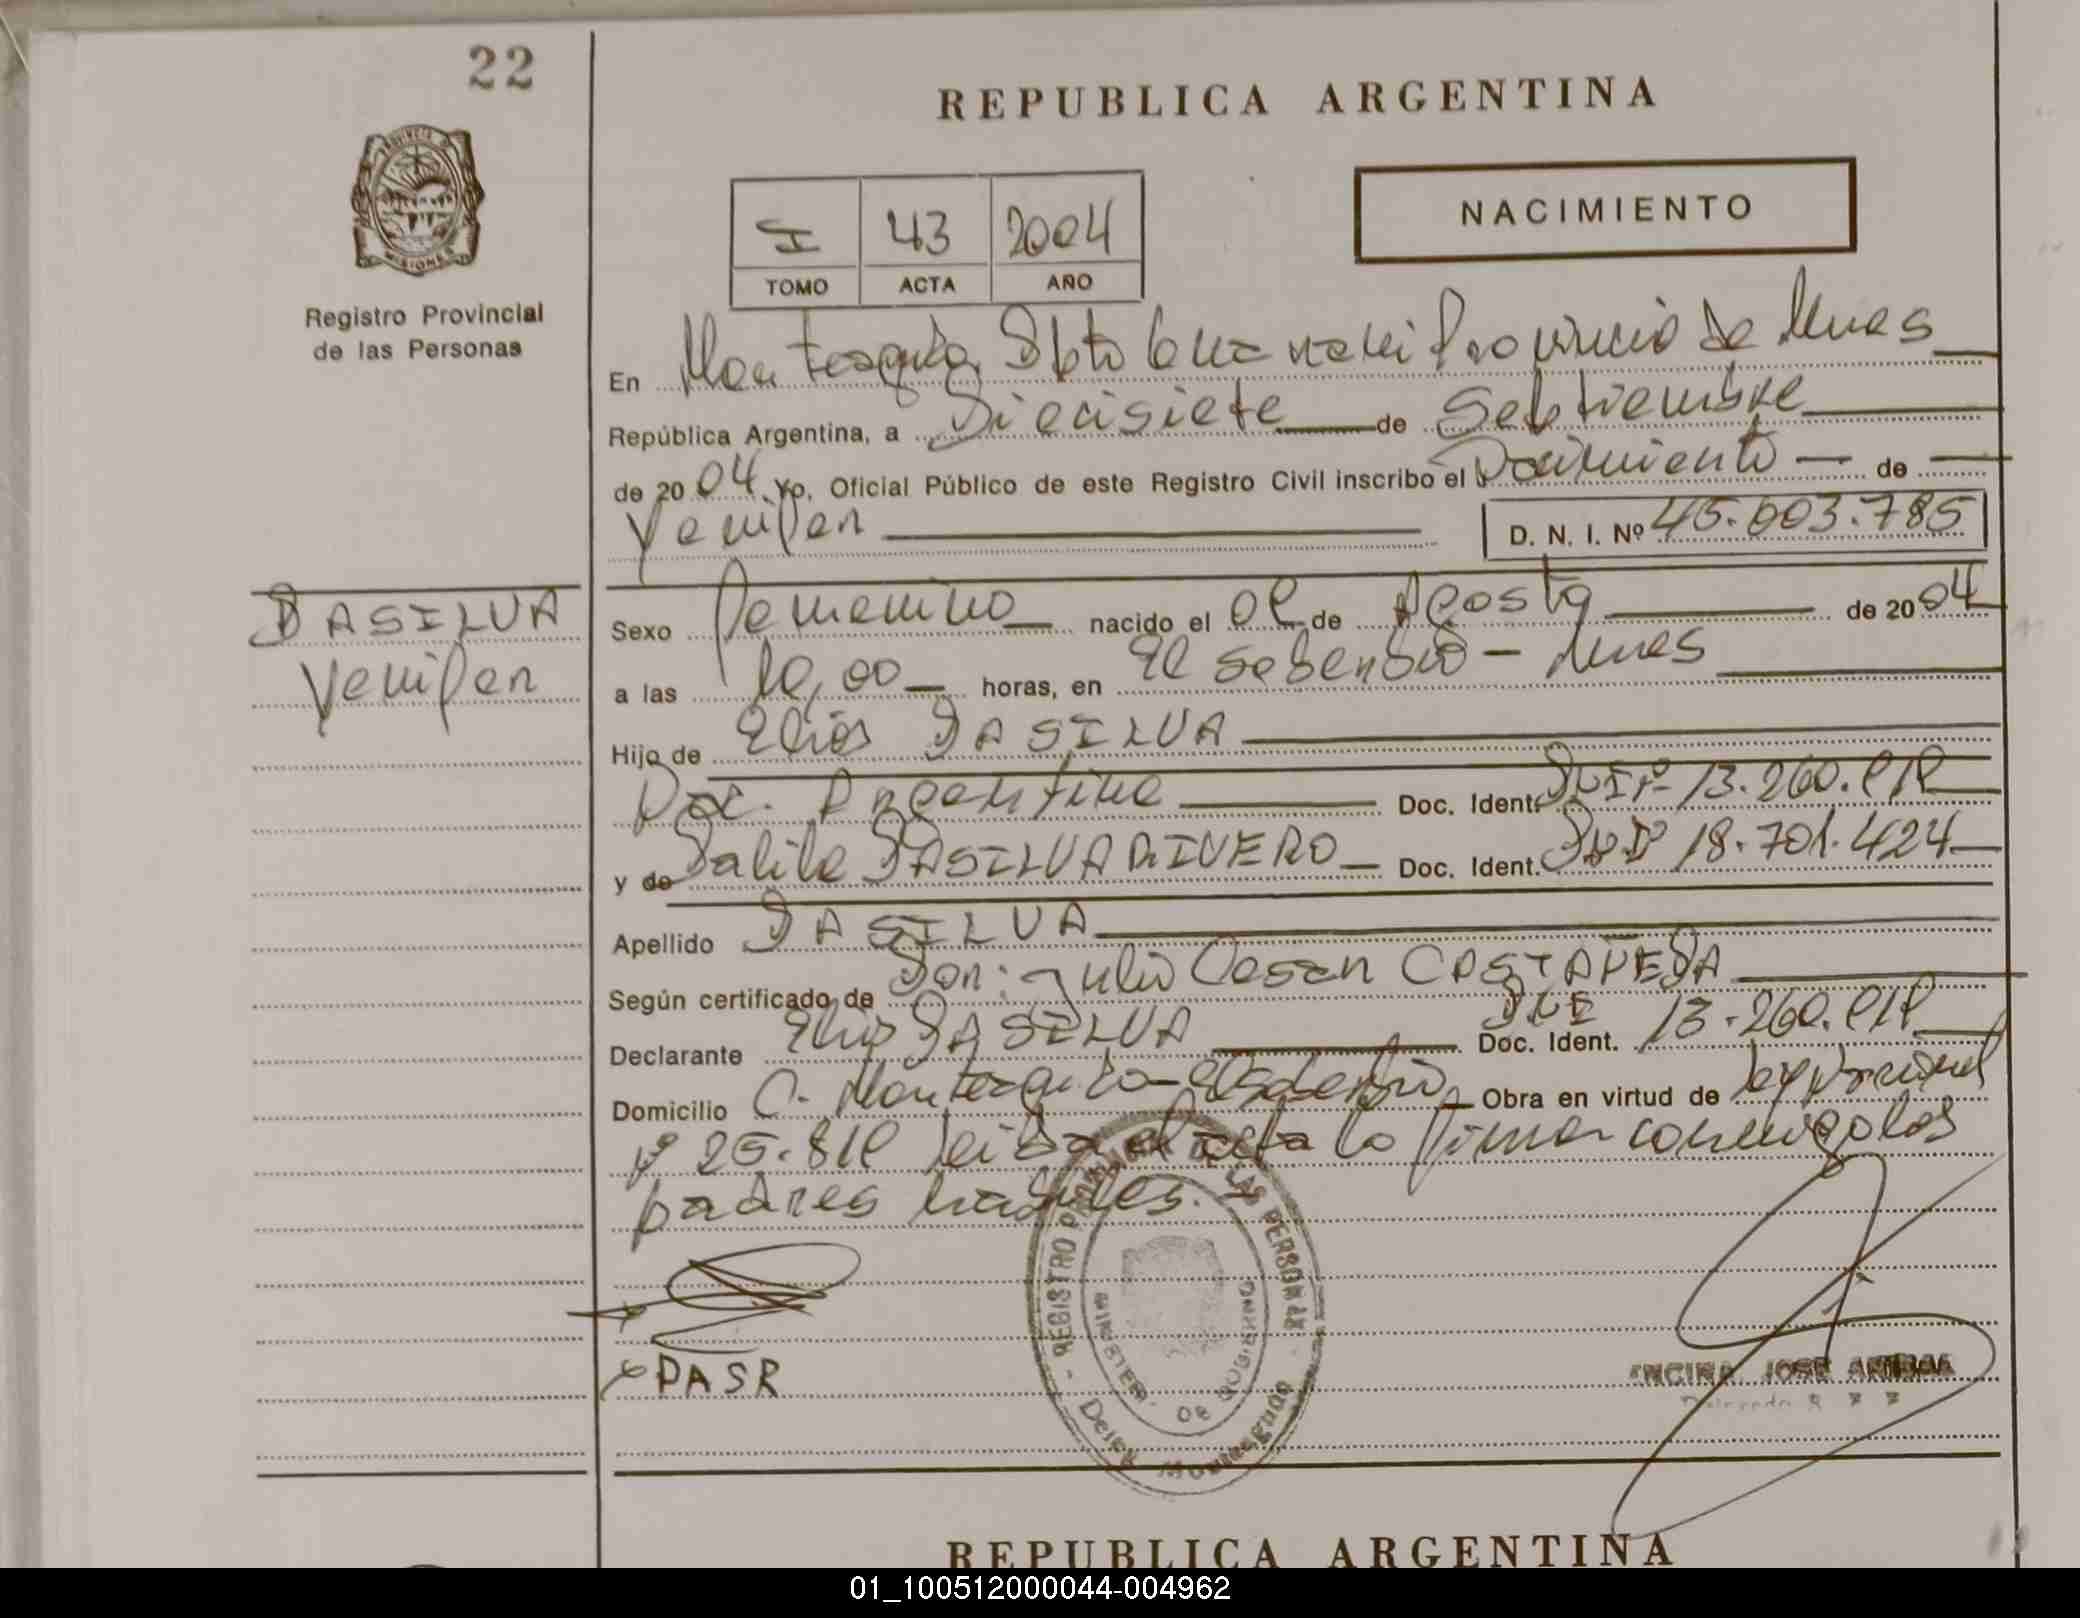 22
REPUBLICA ARGENTINA
PROVINCIA DE
MISIONES
Registro Provincial
de las Personas
NACIMIENTO
I 43 2004
TOMO ACTA AÑO
En Dpto Provincia de Mnes
República Argentina, a Diecisiete de Septiembre
de 2004 yo, Oficial Público de este Registro Civil inscribo el Nacimiento de
Yenifer
D. N. I. Nº 45.603.785
DASILVA
Yenifer
Sexo Femenino nacido el de Agosto de 2004
a las 10,00 horas, en El Soberbio - Mnes
Hijo de Elias DASILVA
Nac. Argentina Doc. Ident. 13.260.818
y de Dalila DASILVA RIVERO Doc. Ident. 18.701.424
Apellido DASILVA
Según certificado de Don: Julio Cesar CASTAÑEDA
Declarante Elias DASILVA Doc. Ident. 13.260.818
Domicilio C. Monteagudo - El Soberbio Obra en virtud de ley
Nº leida el acta la firman conmigo los
padres
REGISTRO PROVINCIAL DE LAS PERSONAS
MINISTERIO DE GOBIERNO
Monteagudo
DASR
ENCINA JOSE ANIBAL
REPUBLICA ARGENTINA
01_100512000044-004962